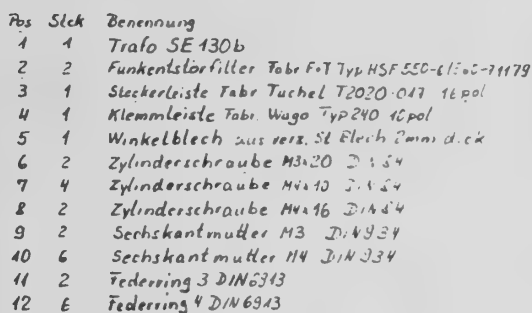 Pos Stck Benennung
1 1 Trafo SE 130b
2 2 Funkentstörfilter Fabr F+T Typ HSF
3 1 Steckerleiste Fabr Tuchel T2020 017 16pol
4 1 Klemmleiste Fabr. Wago Typ 240
5 1 Winkelblech aus verz. St Blech 2mm dick
6 2 Zylinderschraube M3x20
7 4 Zylinderschraube
8 2 Zylinderschraube M4x16
9 2 Sechskantmutter M3 DIN 934
10 6 Sechskantmutter M4 DIN 934
11 2 Federring 3 DIN 6913
12 6 Federring 4 DIN 6913